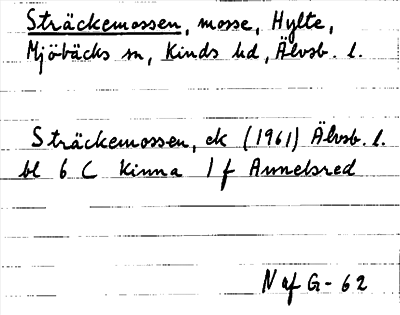 Sträckemossen, mosse, Hylte,
Mjöbäcks sn, Kinds hd, Älvsb. l.
Sträckemossen, ek (1961) Älvsb. l.
bl 6 C Kinna 1 f Annelsred
N af G- 62